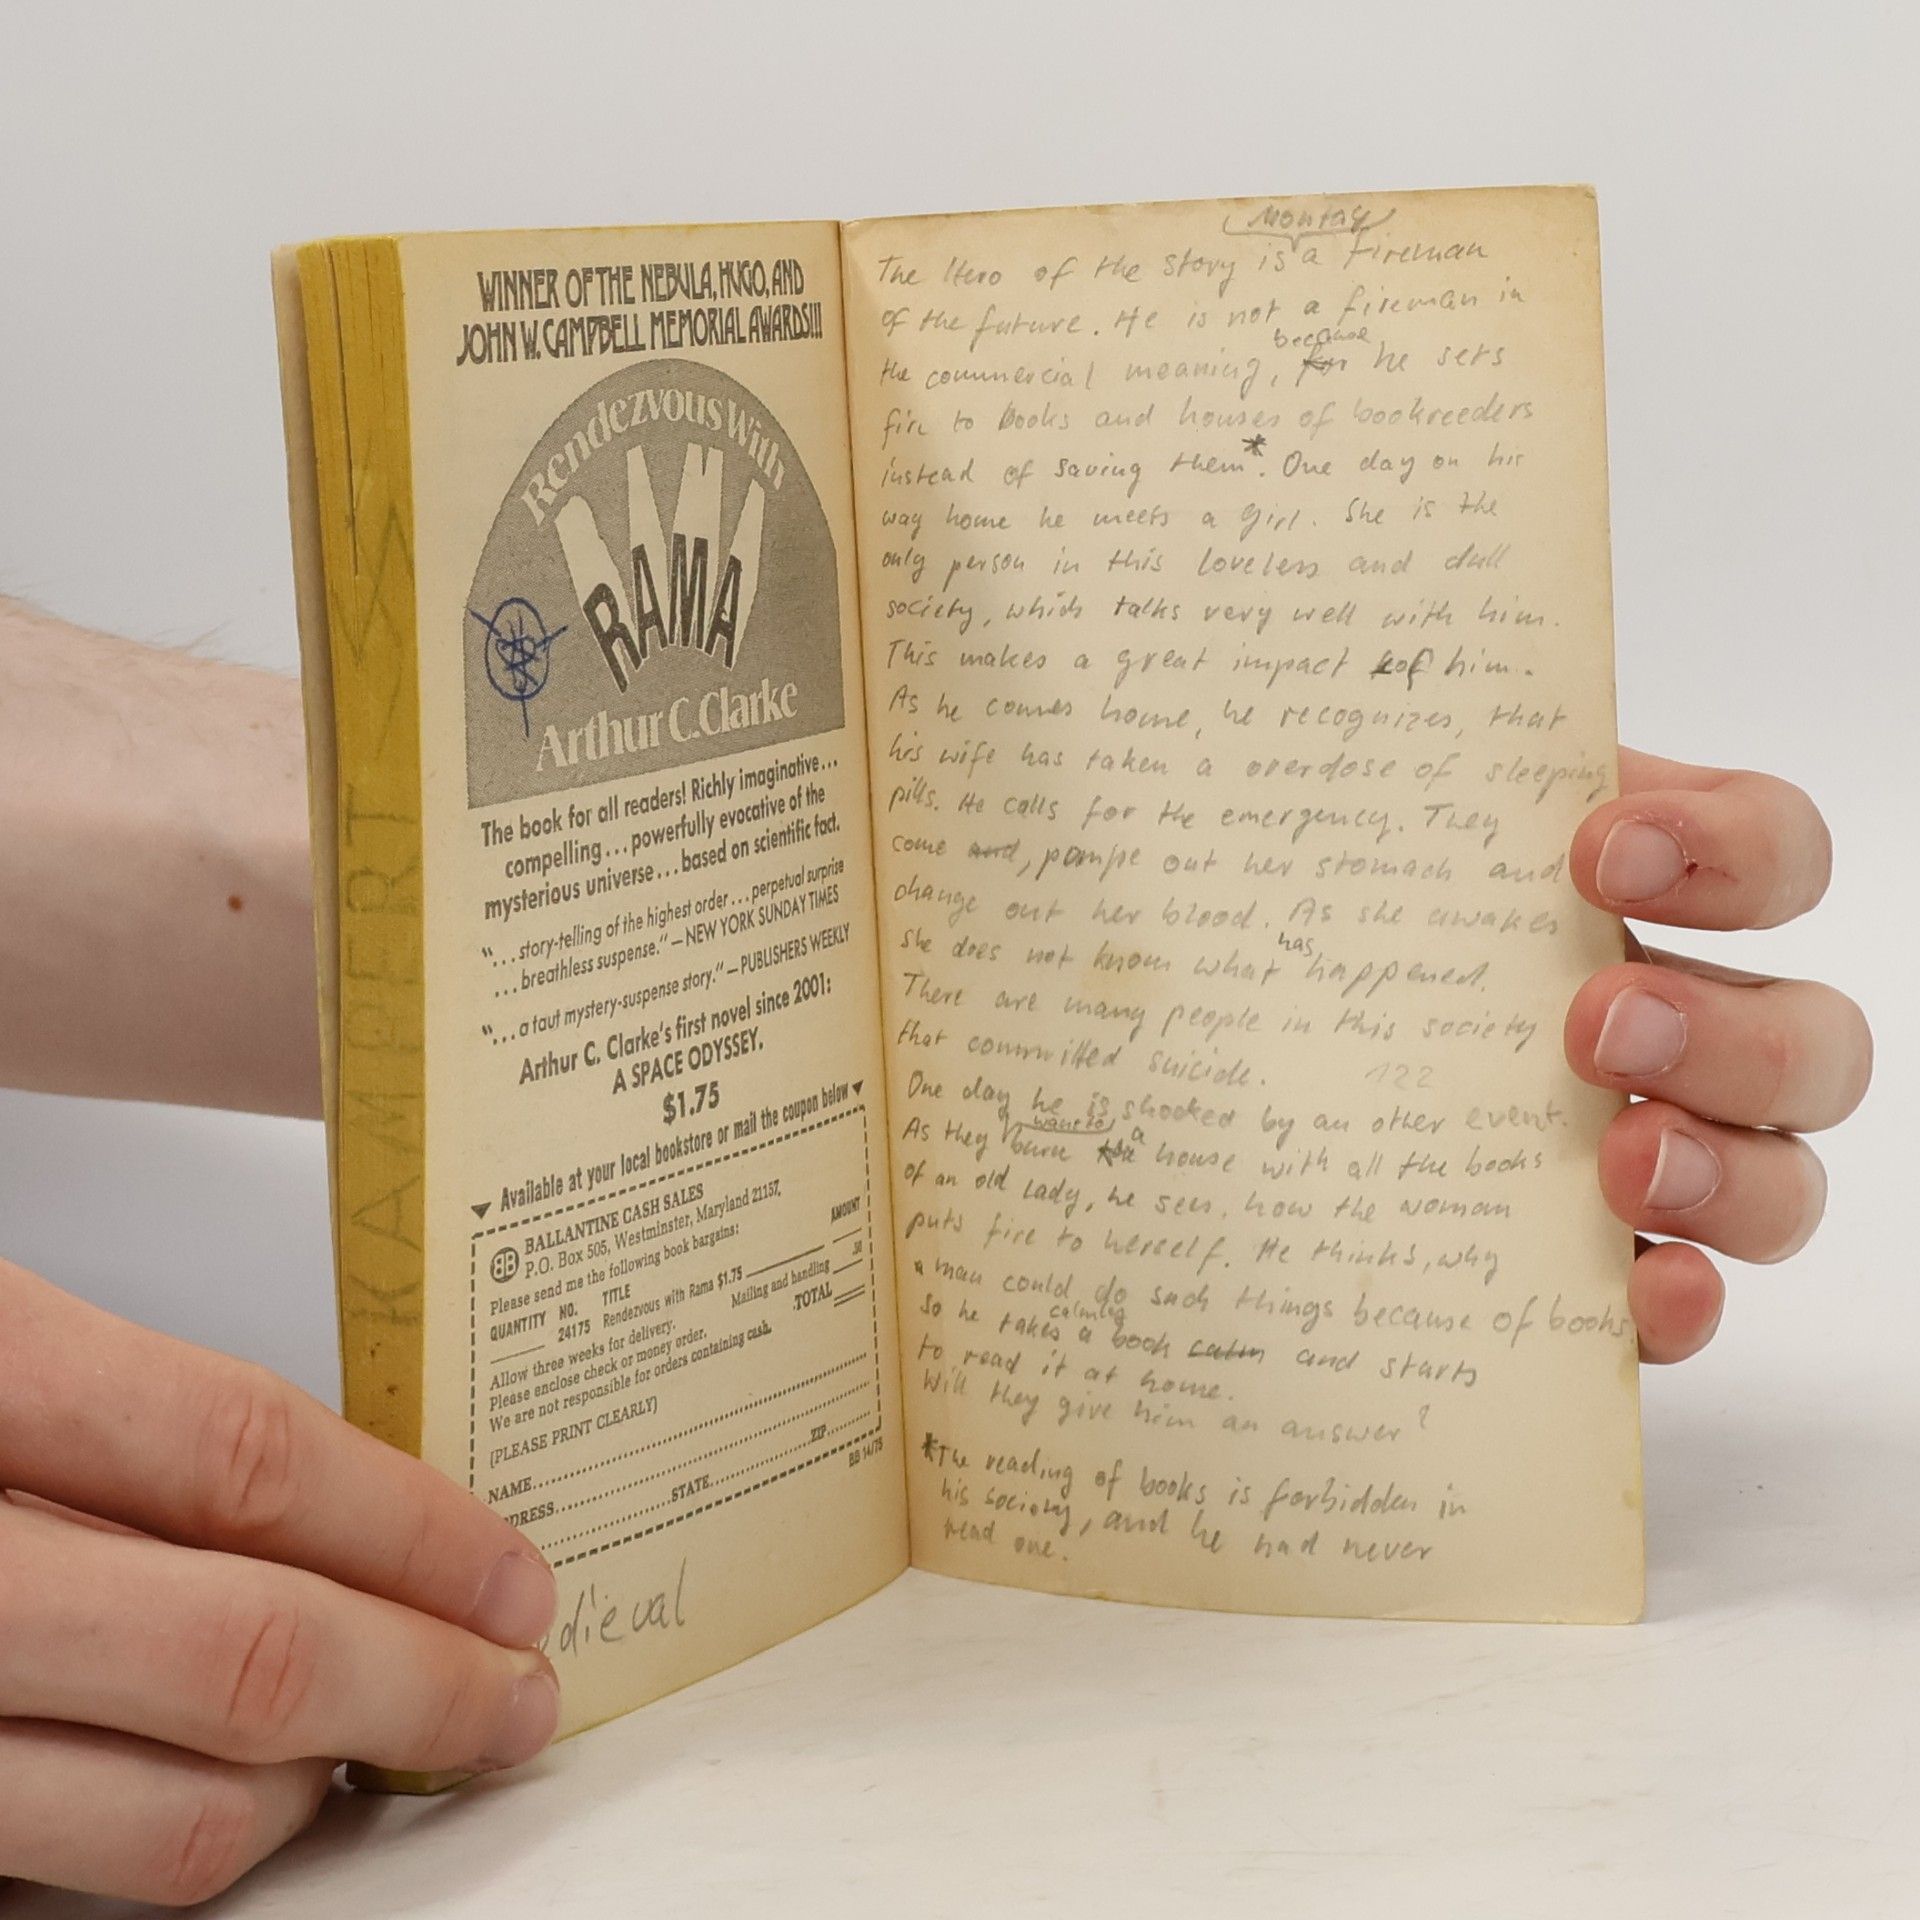 KAMPERT
WINNER OF THE NEBULA, HUGO, AND
JOHN W. CAMPBELL MEMORIAL AWARDS!!!
Rendezvous With
RAMA
Arthur C. Clarke
The book for all readers! Richly imaginative...
compelling...powerfully evocative of the
mysterious universe...based on scientific fact.
"...story-telling of the highest order...perpetual surprise
...breathless suspense."—NEW YORK SUNDAY TIMES
"...a taut mystery-suspense story."—PUBLISHERS WEEKLY
Arthur C. Clarke's first novel since 2001:
A SPACE ODYSSEY.
$1.75
▼ Available at your local bookstore or mail the coupon below ▼
BB BALLANTINE CASH SALES
P.O. Box 505, Westminster, Maryland 21157,
Please send me the following book bargains:
QUANTITY NO. TITLE AMOUNT
24175 Rendezvous with Rama $1.75
Mailing and handling .50
TOTAL
Allow three weeks for delivery.
Please enclose check or money order.
We are not responsible for orders containing cash.
(PLEASE PRINT CLEARLY)
NAME
DRESS
STATE ZIP
BB 14/75
dieval
Montag
The Hero of the story is a fireman
of the future. He is not a fireman in
because
the commercial meaning, for he sets
fire to books and houses of bookreeders
instead of saving them*. One day on his
way home he meets a girl. She is the
only person in this loveless and dull
society, which talks very well with him.
This makes a great impact of him.
As he comes home, he recognizes, that
his wife has taken a overdose of sleeping
pills. He calls for the emergency. They
come and, pompe out her stomach and
change out her blood. As she awakes
has
she does not know what happened.
There are many people in this society
that committed suicide. 122
One day he is shocked by an other event.
want to a
As they burn the house with all the books
of an old lady, he sees, how the woman
puts fire to herself. He thinks, why
a man could do such things because of books
calmleg
So he takes a book calm and starts
to read it at home.
Will they give him an answer?
*The reading of books is forbidden in
his society, and he had never
read one.